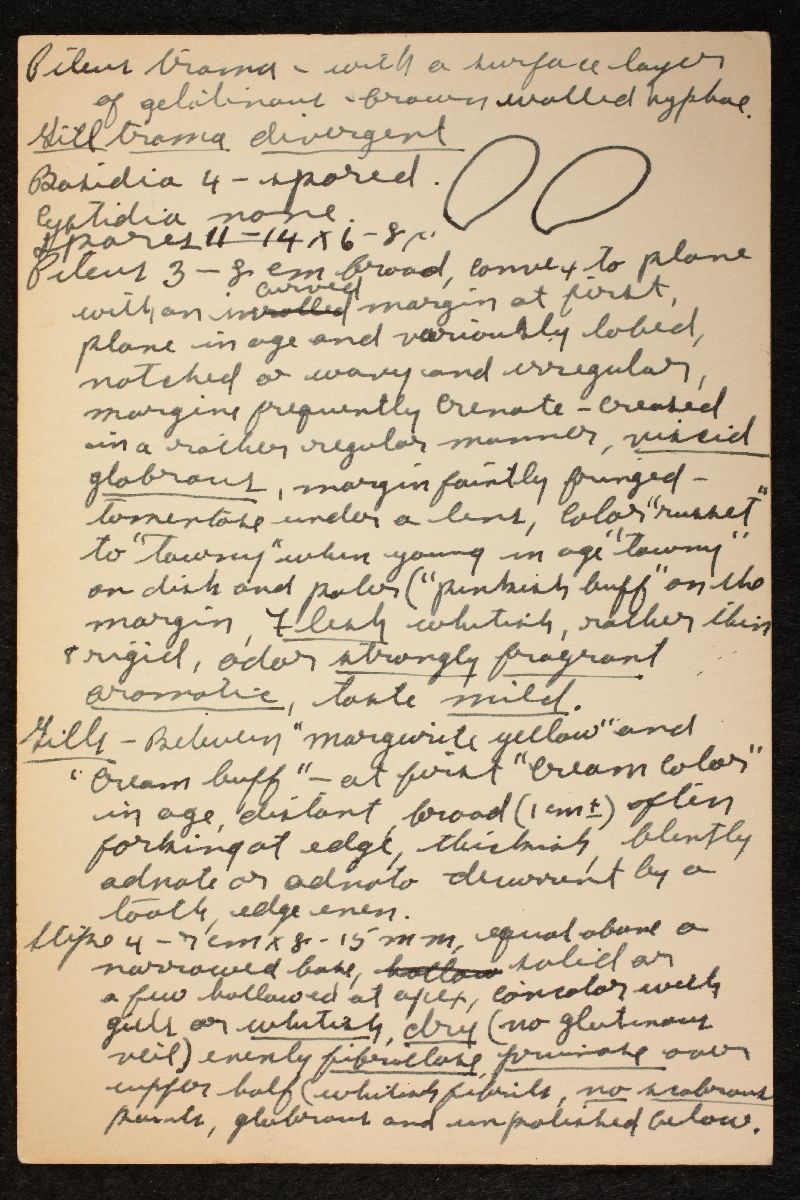 Pileus trama - with a surface layer
of gelatinous - brown walled hyphae.
Gill trama divergent
Basidia 4 - spored.
Cystidia none.
Spores 11-14 x 6-8 µ.
Pileus 3 - 8 cm broad, convex to plane
with an incurved margin at first,
plane in age and variously lobed,
notched or wavy and irregular,
margine frequently crenate - creased
in a rather regular manner, viscid
glabrous, margin faintly fringed -
tomentose under a lens, color "russet"
to "tawny" when young in age "tawny"
on disk and paler ("pinkish buff" on the
margin, flesh whitish, rather thin
& rigid, odor strongly fragrant
aromatic, taste mild.
Gills - Between "marguerite yellow" and
"cream buff" - at first "cream color"
in age, distant, broad (1 cm ±) often
forking at edge, thickish, bluntly
adnate or adnato decurrent by a
tooth, edge even.
Stipe 4 - 7 cm x 8 - 15 mm, equal above a
narrowed base, solid or
a few hollowed at apex, concolor with
gills or whitish, dry (no glutinous
veil) evenly fibrillose, pruinose over
upper half (whitish fibrils, no scabrous
points, glabrous and unpolished below.